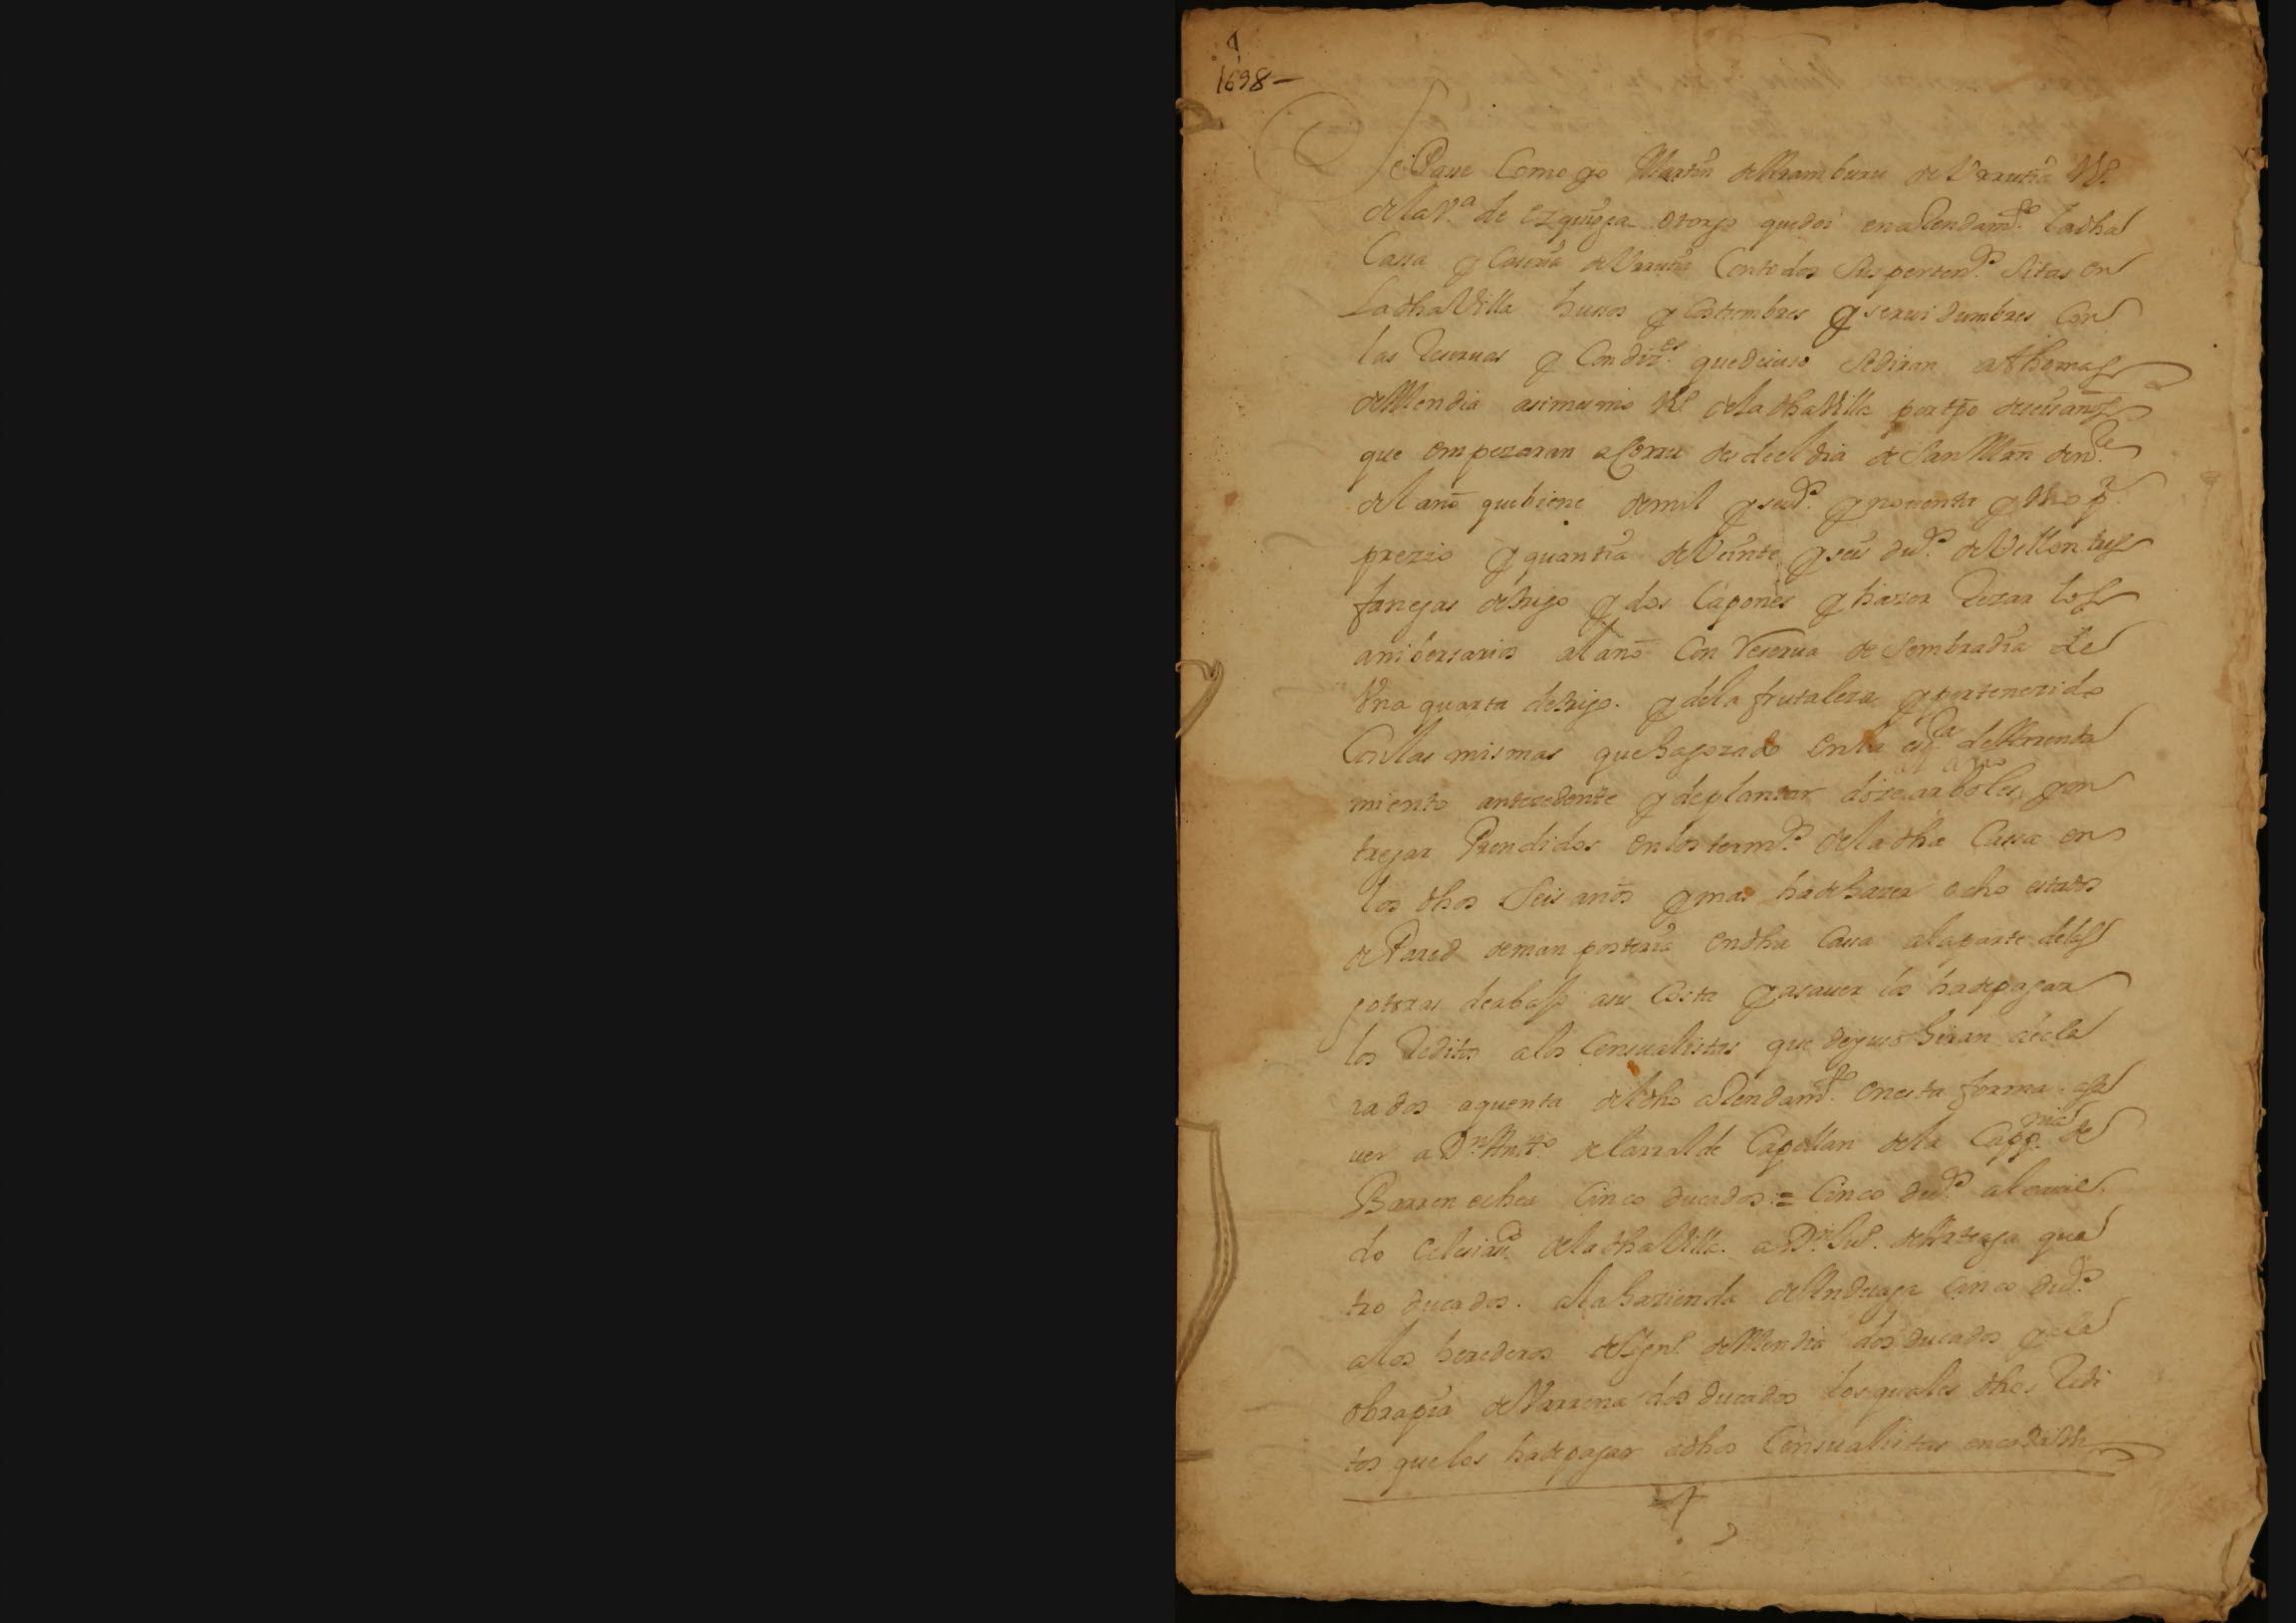 1698 -
Sepasse Como yo Martin de Aramburu de Vrrutia Vº
de la Vª de ezquioga otorgo que doi en arrendamto. la dha
Cassa y Caseria de Vrrutia Con todos sus pertendos sitas en
La dha Villa hussos y Costumbres y seruidumbres Con
las reseruas y Condizes. que deiuso se diran a Thomas
de Mendia asimesmo Vº de la dha Villa por tpo de seis años
que empezaran a Correr desde el dia de San Mrn de nre
del año que biene de mil y seisos. y nouenta y ocho pr.
prezio y quantia de Veinte y seis dus. de Vellon tres
fanegas de trigo y dos Capones y hazer rezar los
anibersarios al año Con reserua de sembradia de
Vna quarta de trigo. y de la frutalera y pertenezido
Con las mismas que ha gozado en la esra de Arrenda
miento antezedente y de plantar doze arboles al año y en
tregar Prendidos en los termos. de la dha Cassa en
los dhos seis años y mas ha de hazer ocho estados
de Pared de mamposteria en dha Cassa a la parte de las
goteras de abajo a su Costa y a sauer los ha de pagar
los reditos a los Censualistas que depues hiran decla
rados a quenta del dho arrendamto. en esta forma. a sa
uer a Dn. Antto. de Larralde Capellan de la Cappnia. de
Barrenechea Cinco ducados = Cinco dus. al cauil
do eclesiaco. de la dha Villa. a Dn. Juº. de Arteaga qua
tro ducados. a la hazienda de Anduaga Cinco dus.
a los herederos de de Mendia dos ducados y a la
obrapia de dos ducados los quales dhos redi
tos que los ha de pagar a dhos Censualistas en cada